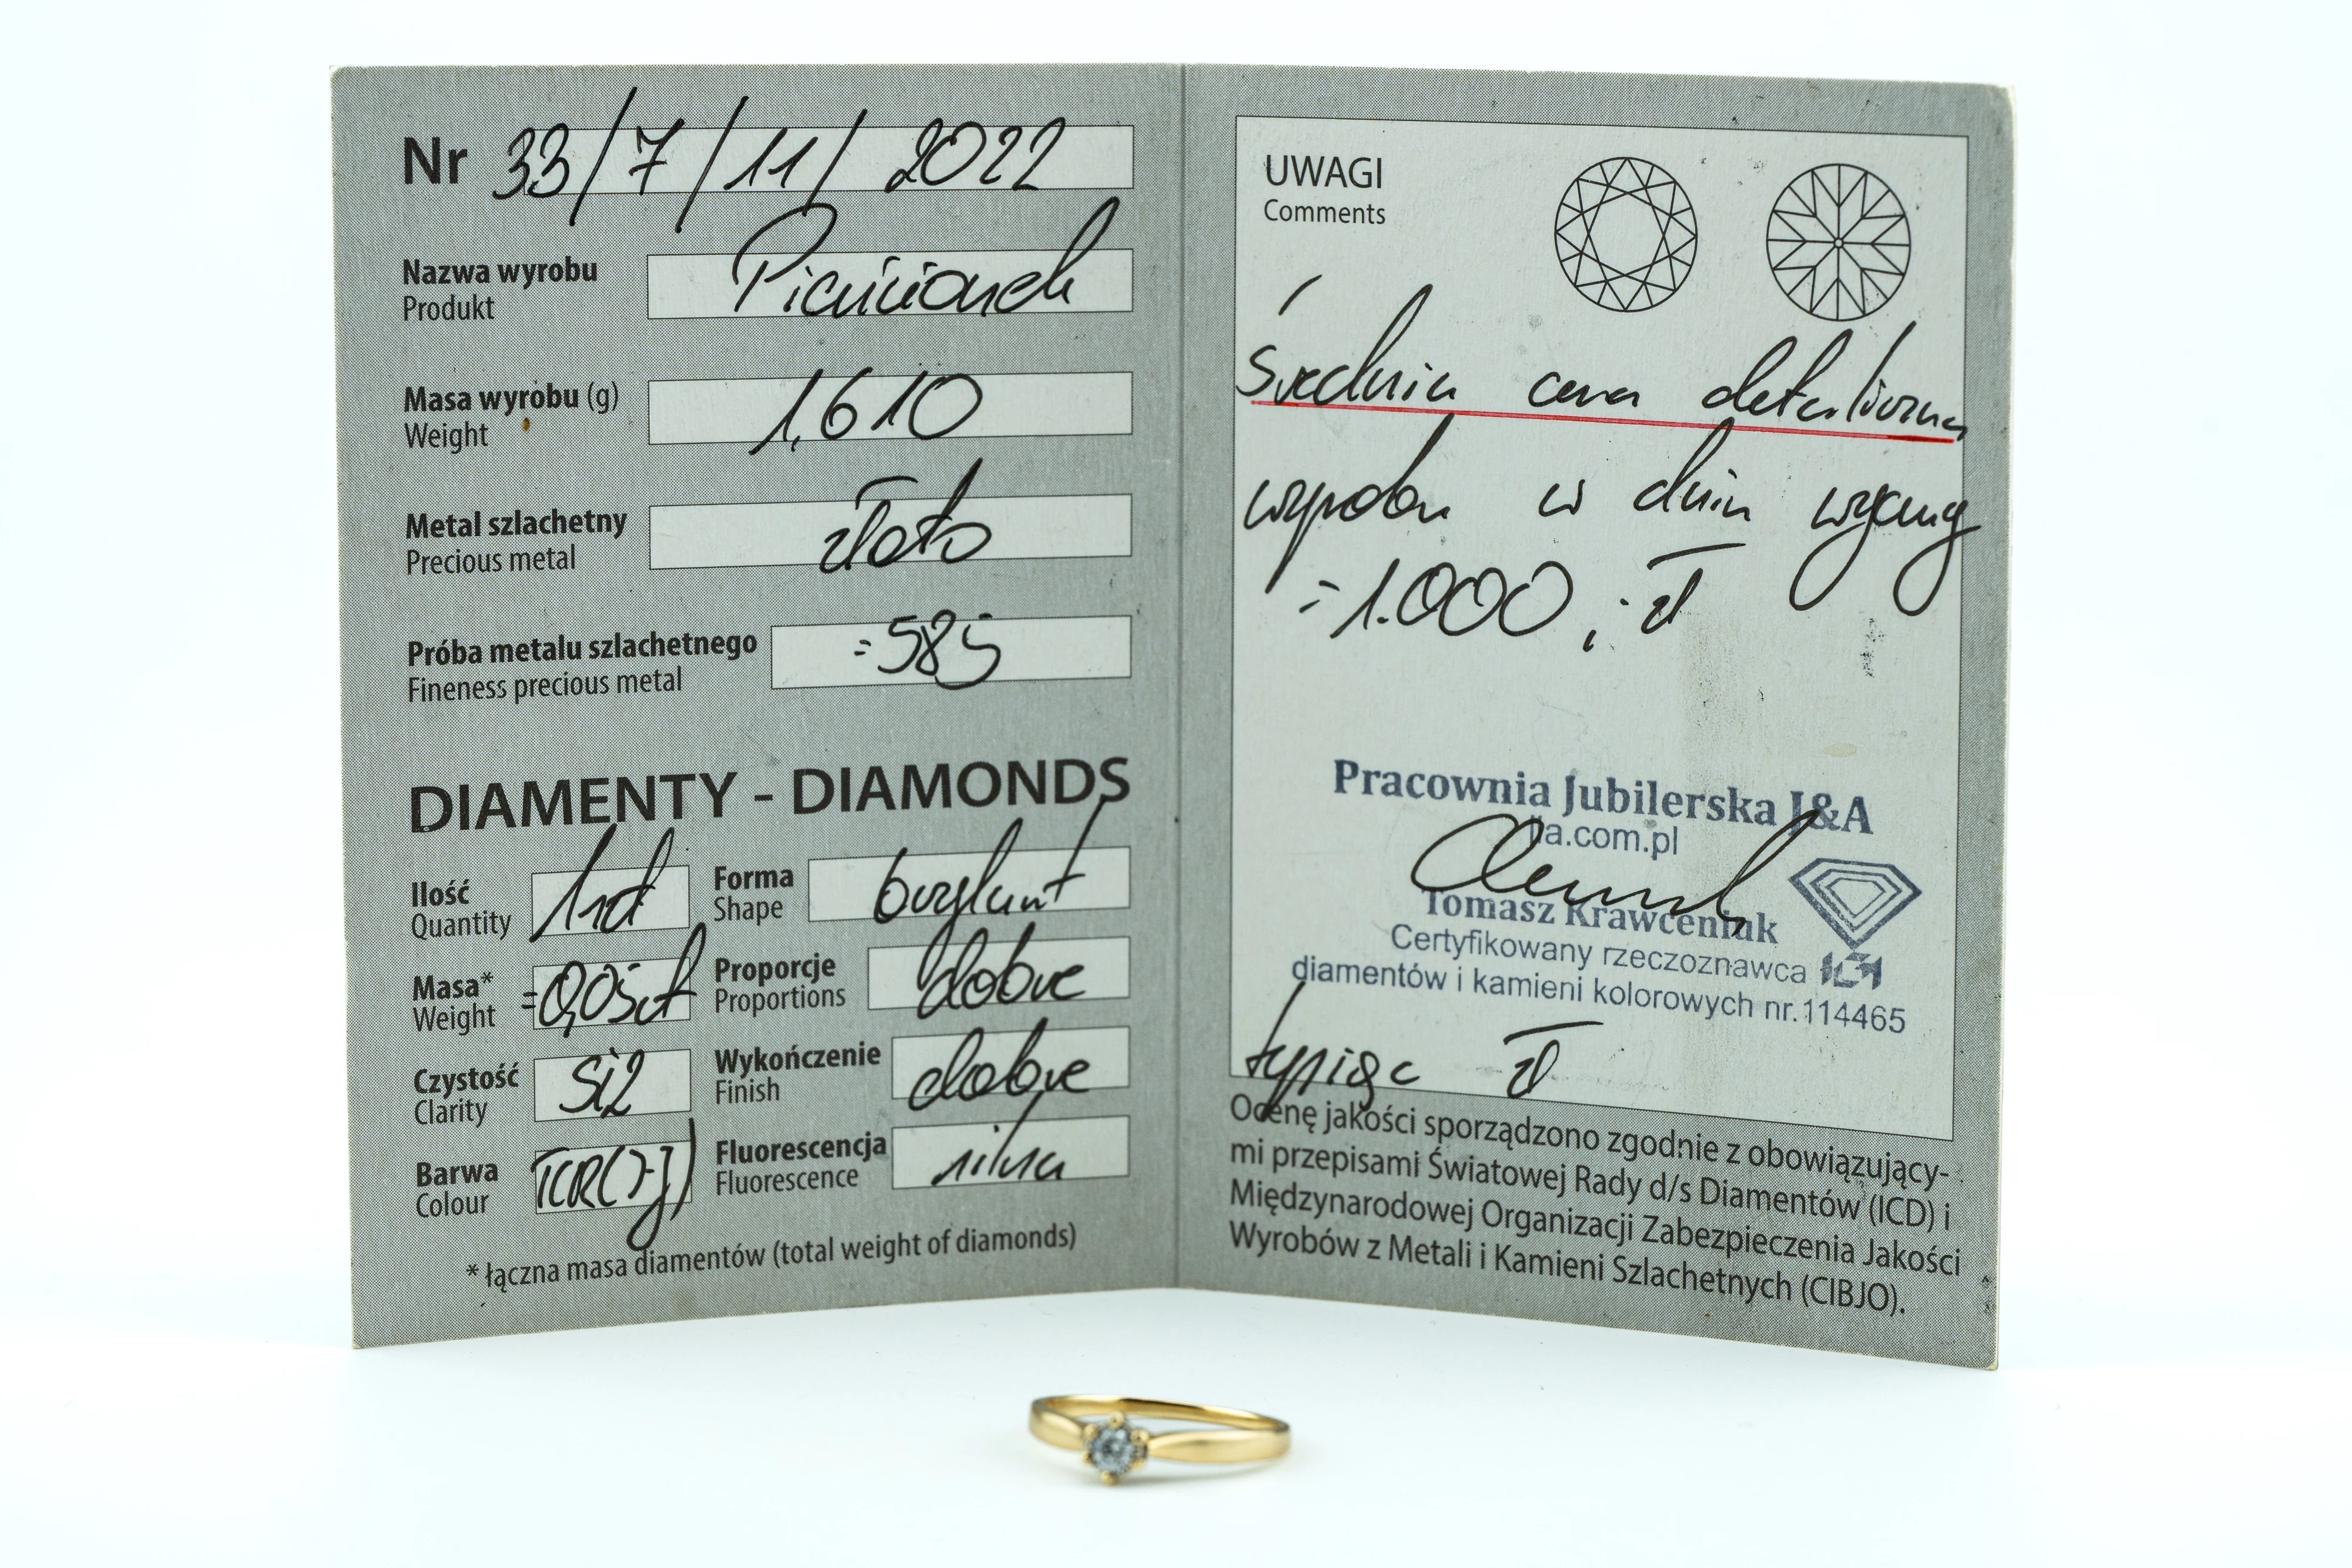 Nr 33/7/11/2022
Nazwa wyrobu
Produkt
Pierścionek
Masa wyrobu (g)
Weight
1,610
Metal szlachetny
Precious metal
złoto
Próba metalu szlachetnego
Fineness precious metal
=585
DIAMENTY - DIAMONDS
Ilość
Quantity
Forma
Shape
brylant
Masa*
Weight
=0,05ct
Proporcje
Proportions
dobre
Czystość
Clarity
Si2
Wykończenie
Finish
dobre
Barwa
Colour
TCR(I-J)
Fluorescencja
Fluorescence
silna
* łączna masa diamentów (total weight of diamonds)
UWAGI
Comments
Średnia cena detaliczna
wyrobu w dniu wyceny
=1.000,- zł
Pracownia Jubilerska J&A
ja.com.pl
Tomasz Krawceniuk
Certyfikowany rzeczoznawca
diamentów i kamieni kolorowych nr.114465
tysiąc zł
Ocenę jakości sporządzono zgodnie z obowiązujący-
mi przepisami Światowej Rady d/s Diamentów (ICD) i
Międzynarodowej Organizacji Zabezpieczenia Jakości
Wyrobów z Metali i Kamieni Szlachetnych (CIBJO).